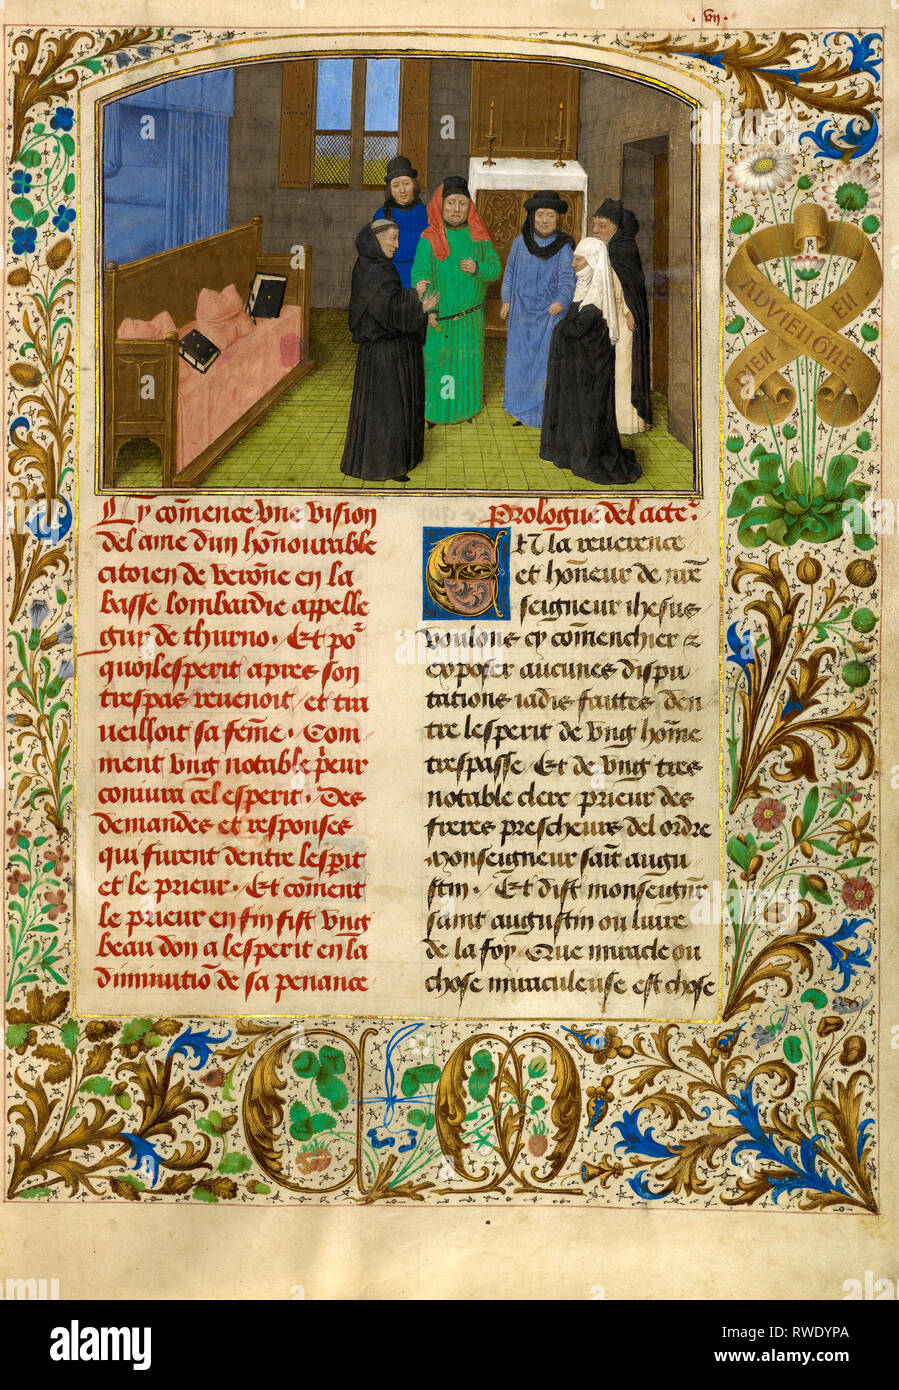 .vij.
ADVIENGNE
BIEN EN
Cy commence une vision
del ame dun honnourable
citoien de verone en la
basse lombardie appelle
guy de thurno. Et po~
quoi lesperit apres son
trespas revenoit et tra
veilloit sa feme. Com
ment ung notable prieur
coniura cel esperit. Des
demandes et responses
qui furent dentre lesprit
et le prieur. Et coment
le prieur en fin fist ung
beau don a lesperit en la
diminutio~ de sa penance
Prologue del acte~
EN la reverence
et honeur de nre~
seigneur ihesus
voulons cy comenchier z
exposer aucunes dispu
tations iadis faittes den
tre lesperit de ung home
trespasse. Et de ung tres
notable clerc prieur des
freres prescheurs del ordre
Monseigneur saint augu
stin. Et dist monseignr~
saint augustin ou livre
de la foy. Que miracle ou
chose miraculeuse est chose
C M
alamy
Image ID: RWDYPA
www.alamy.com